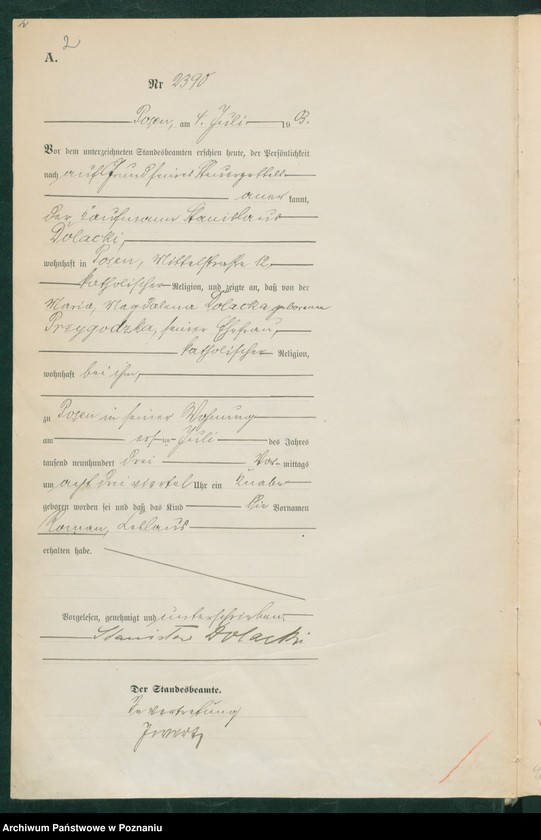 2
A.
Nr 2390
Posen, am 4. Juli 1903.
Vor dem unterzeichneten Standesbeamten erschien heute, der Persönlichkeit
nach auf Grund seines Steuerzettels
anerkannt,
der Kaufmann Stanislaus
Dolacki,
wohnhaft in Posen, Mittelstraße 12,
katholischer Religion, und zeigte an, daß von der
Maria, Magdalena Dolacka geborenen
Przygodzka, seiner Ehefrau,
katholischer Religion,
wohnhaft bei ihm,
zu Posen in seiner Wohnung
am ersten Juli des Jahres
tausend neunhundert drei Vormittags
um acht drei viertel Uhr ein Knabe
geboren worden sei und daß das Kind die Vornamen
Roman, Leslaus
erhalten habe.
Vorgelesen, genehmigt und unterschrieben
Stanisław Dolacki
Der Standesbeamte.
In Vertretung
Archiwum Państwowe w Poznaniu